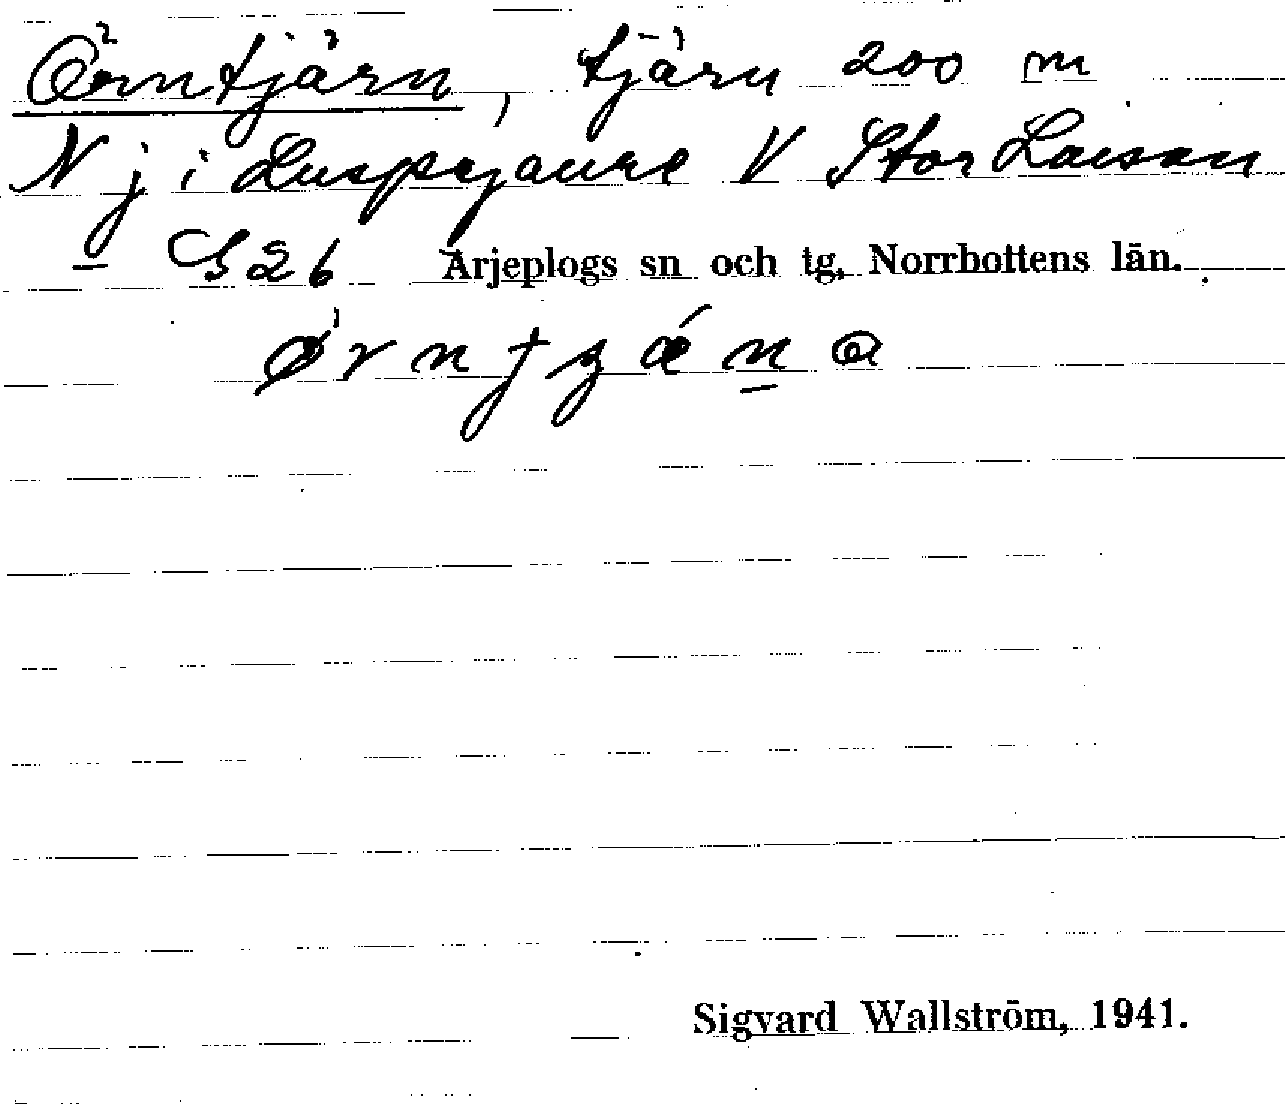 Örntjärn, tjärn 200 m
N j i Luspejaure V Stor Laisan
S26 Arjeplogs sn och tg, Norrbottens län.
Sigvard Wallström, 1941.